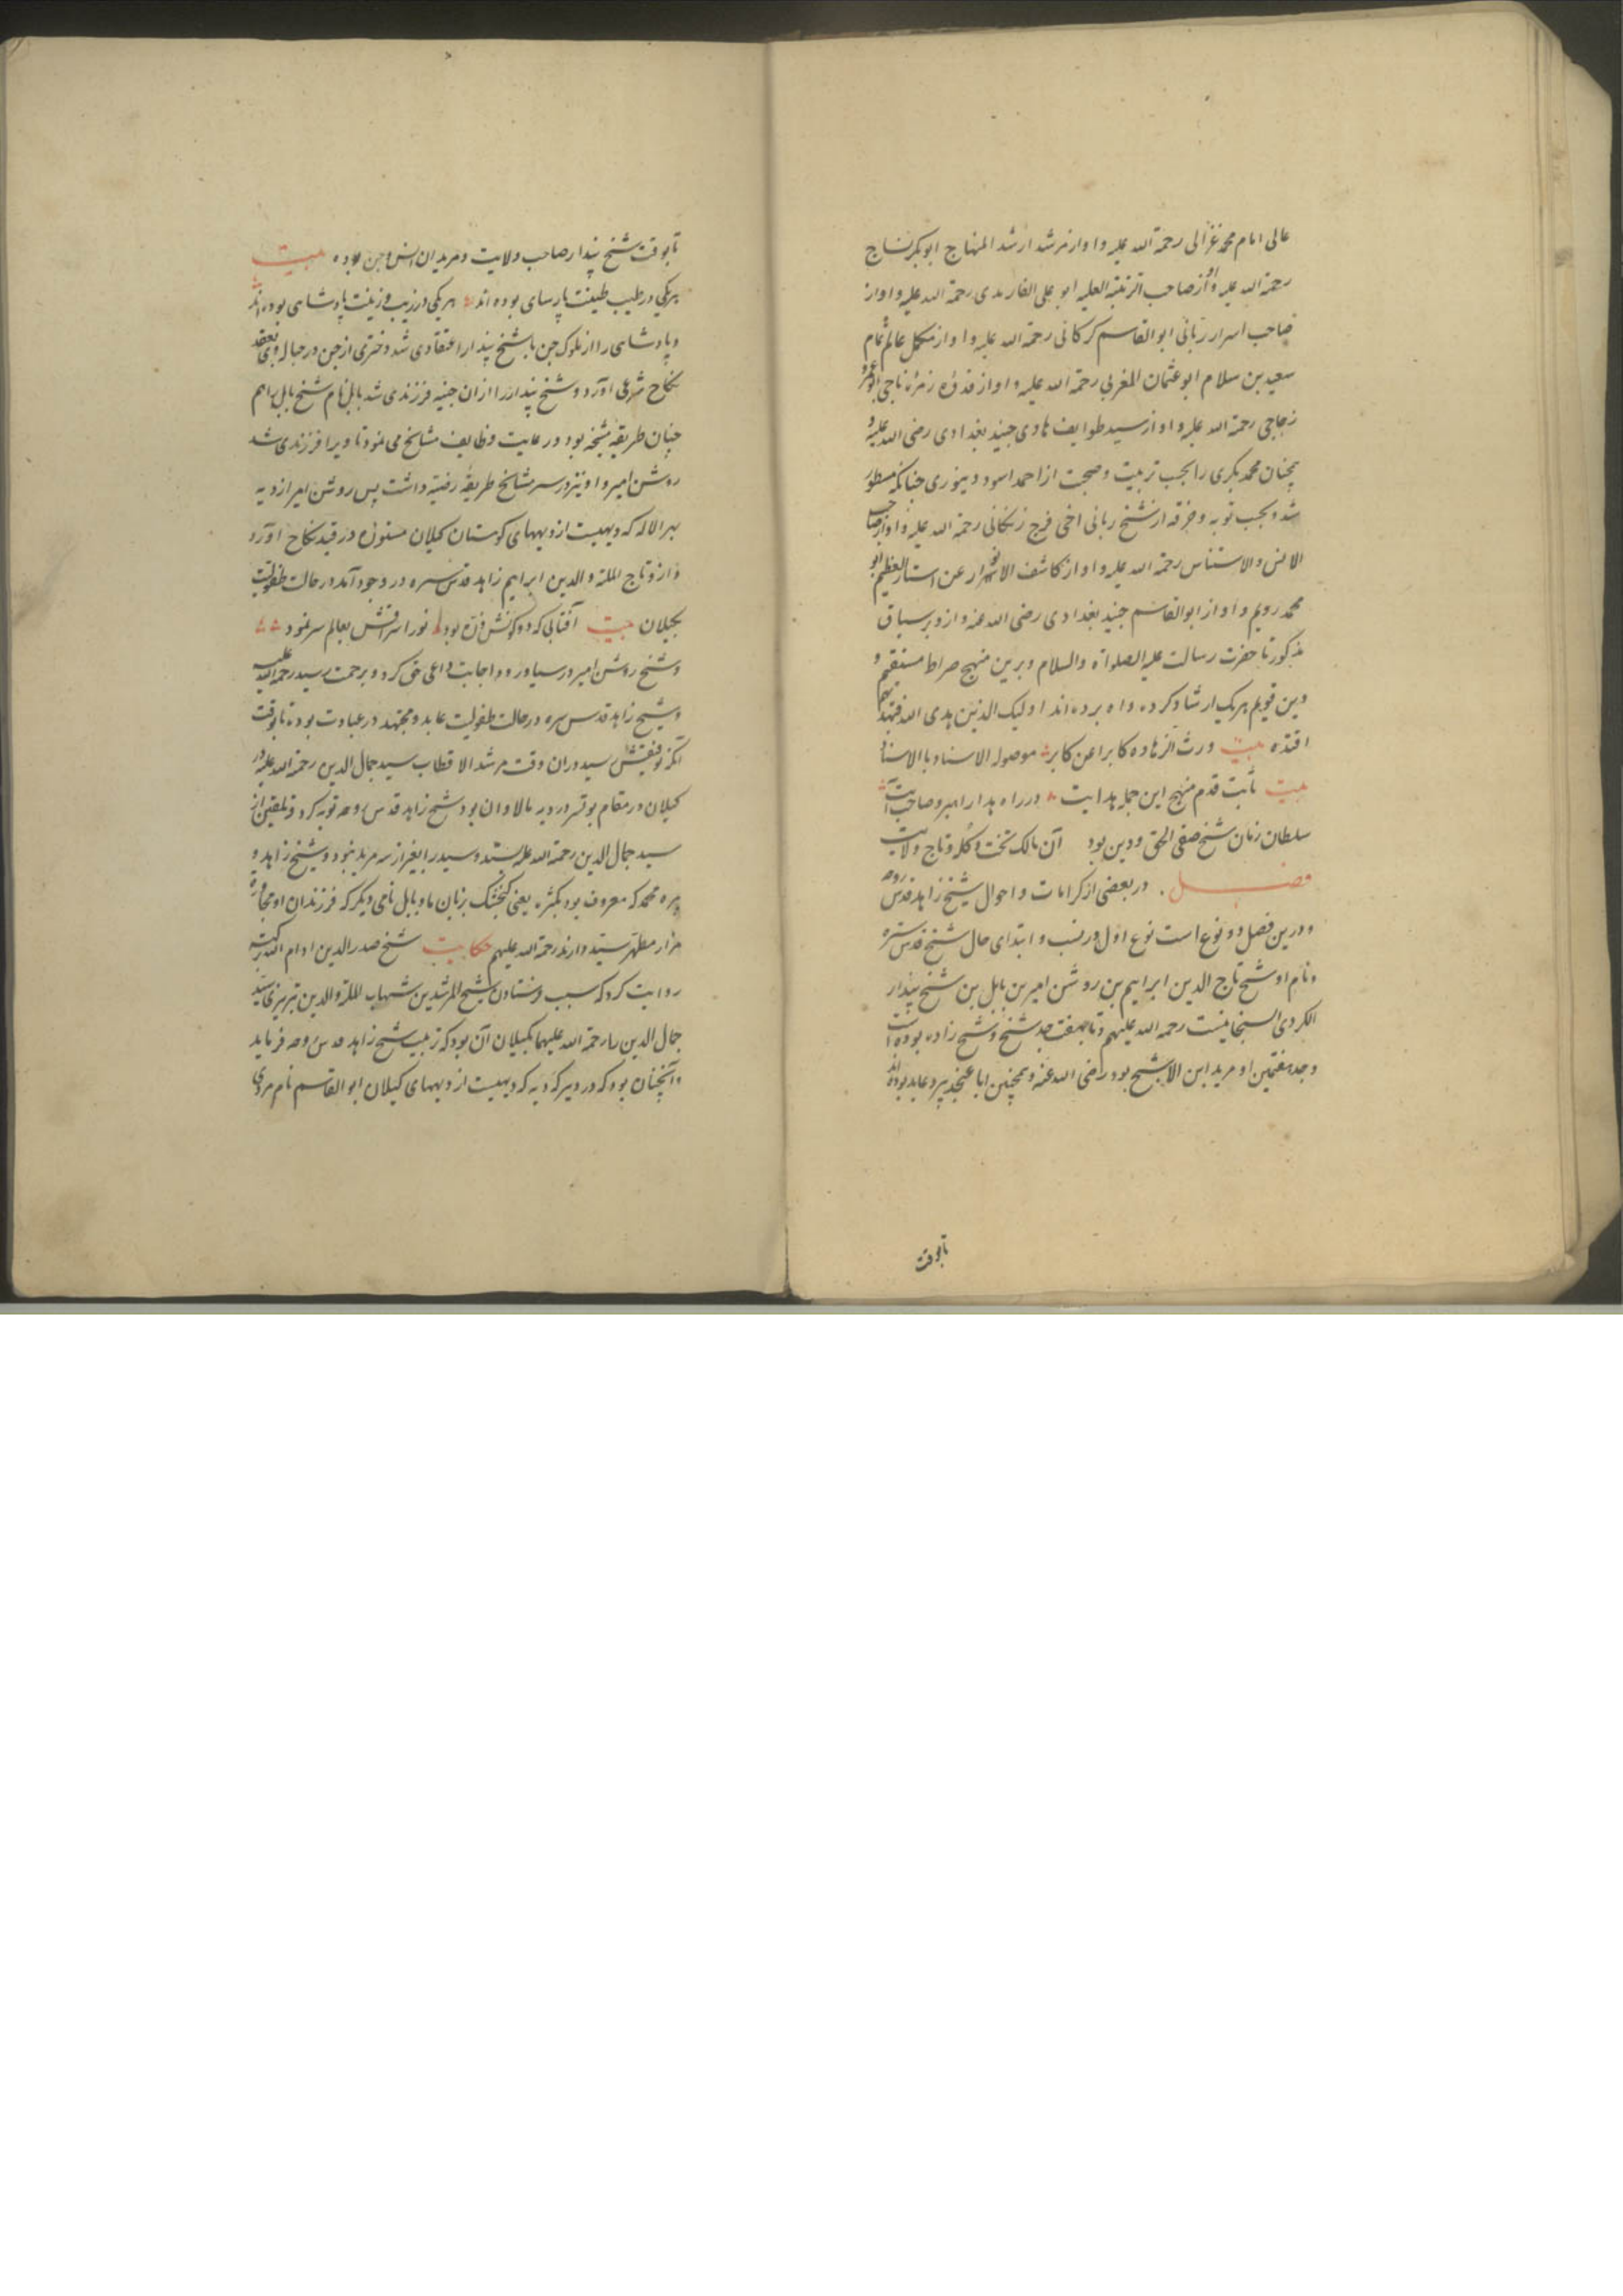 عالی امام محمد غزالی رحمة الله علیه و او از مرشد ارشد المنهاج ابوبکر نساج
رحمة الله علیه و او از صاحب الرتبة العلیه ابو علی الفارمدی رحمة الله علیه و او از
صاحب اسرار ربانی ابو القاسم کرکانی رحمة الله علیه و او از مکمل عالم تمام
سعید بن سلام ابو عثمان المغربی رحمة الله علیه و او از قدوه زمره ناجی ابو عمرو
زجاجی رحمة الله علیه و او از سید طوایف هادی جنید بغدادی رضی الله علیه و
همچنان محمد بکری را بحسب تربیت و صحبت از احمد اسود دینوری چنانکه مسطور
شد و بحسب توبه و خرقه از شیخ ربانی اخی فرج زنکانی رحمة الله علیه و او از صاحب
الانس و الاستناس رحمة الله علیه و او از کاشف الاسرار عن استار العظیم ابو
محمد رویم و او از ابو القاسم جنید بغدادی رضی الله عنه و از و بر سیاق
مذکور تا حضرت رسالت علیه الصلواة والسلام و برین منهج صراط مستقیم و
دین قویم هر یک ارشاد کرده و راه برده اند اولیک الذین هدی الله فبهدیهم
اقتده بیت ورث الزهاده کابرا عن کابر موصوله الاسناد با الاسناد
بیت ثابت قدم منهج این جمله هدایت در راه هدا رهبر و صاحب آیت
سلطان زمان شیخ صفی الحق و دین بود آن مالک تخت و کله و تاج ولایت
فصل در بعضی از کرامات و احوال شیخ زاهد قدس روحه
و درین فصل دو نوع است نوع اول در نسب و ابتدای حال شیخ قدس سره
و نام او شیخ تاج الدین ابراهیم بن روشن امیر بن بابل بن شیخ پندار
الکردی السنجانیست رحمه الله علیهم و تا بهفت جد شیخ و شیخ زاده بوده است
و جد هفتمین او مرید ابن الاشبح بود رضی الله عنه و همچنین ابا عنجد پیر و عابد بوده اند
تا بوقت
تا بوقت شیخ پندار صاحب ولایت و مریدان انس و جن بوده بیت
هر یکی در طیب طینت پارسای بوده اند هر یکی در زیب و زینت پادشاهی بوده اند
و پادشاهی را از ملوک جن با شیخ پندار اعتقادی شد و دختری از جن در حباله وی بعقد
نکاح شرعی آورد و شیخ پندار را ازان جنیه فرزندی شد بابل نام شیخ بابل هم
چنان طریقه شیخه بود و رعایت وظایف مشایخ می نمود تا ویرا فرزندی شد
روشن امیر و او نیز در سر مشایخ طریقه رضیه داشت پس روشن امیر از دیه
هیر الاله که دیهیست از دیهیهای کوهستان کیلان مستوره در قید نکاح آورد
و ازو تاج الملة والدین ابراهیم زاهد قدس سره در وجود آمد در حالت طفولیت
بجیلان بیت آفتابی که دو کونش ذره بود نور اشراقش بعالم سر نمود
و شیخ روشن امیر در سیاورود اجابت داعی حق کرد و برحمت رسید رحمة الله علیه
و شیخ زاهد قدس سره در حالت طفولیت عابد و مجتهد در عبادت بوده تا بوقت
آنکه توفیقش سید دوران وقت مرشد الاقطاب سید جمال الدین رحمة الله علیه در
کیلان در مقام بوتسرور دیه مالاوان بود شیخ زاهد قدس روحه توبه کرد و تلقین از
سید جمال الدین رحمة الله علیه ستد و سید را بغیر از سه مرید نبود و شیخ زاهد و
پیره محمد که معروف بود بکشره یعنی کنجشک بزبان ما و بابل نامی دیکر که فرزندان او مجاوره
مزار مطهر سید دارند رحمة الله علیهم حکایت شیخ صدر الدین ادام الله برکته
روایت کرد که سبب فرستادن شیخ المرشدین شهاب الملة والدین تبریزی سید
جمال الدین را رحمة الله علیهما بکیلان آن بود که تربیت شیخ زاهد قدس روحه فرماید
و آنچنان بود که در دیر که دیه که دیهیست از دیهیهای کیلان ابو القاسم نام مردی